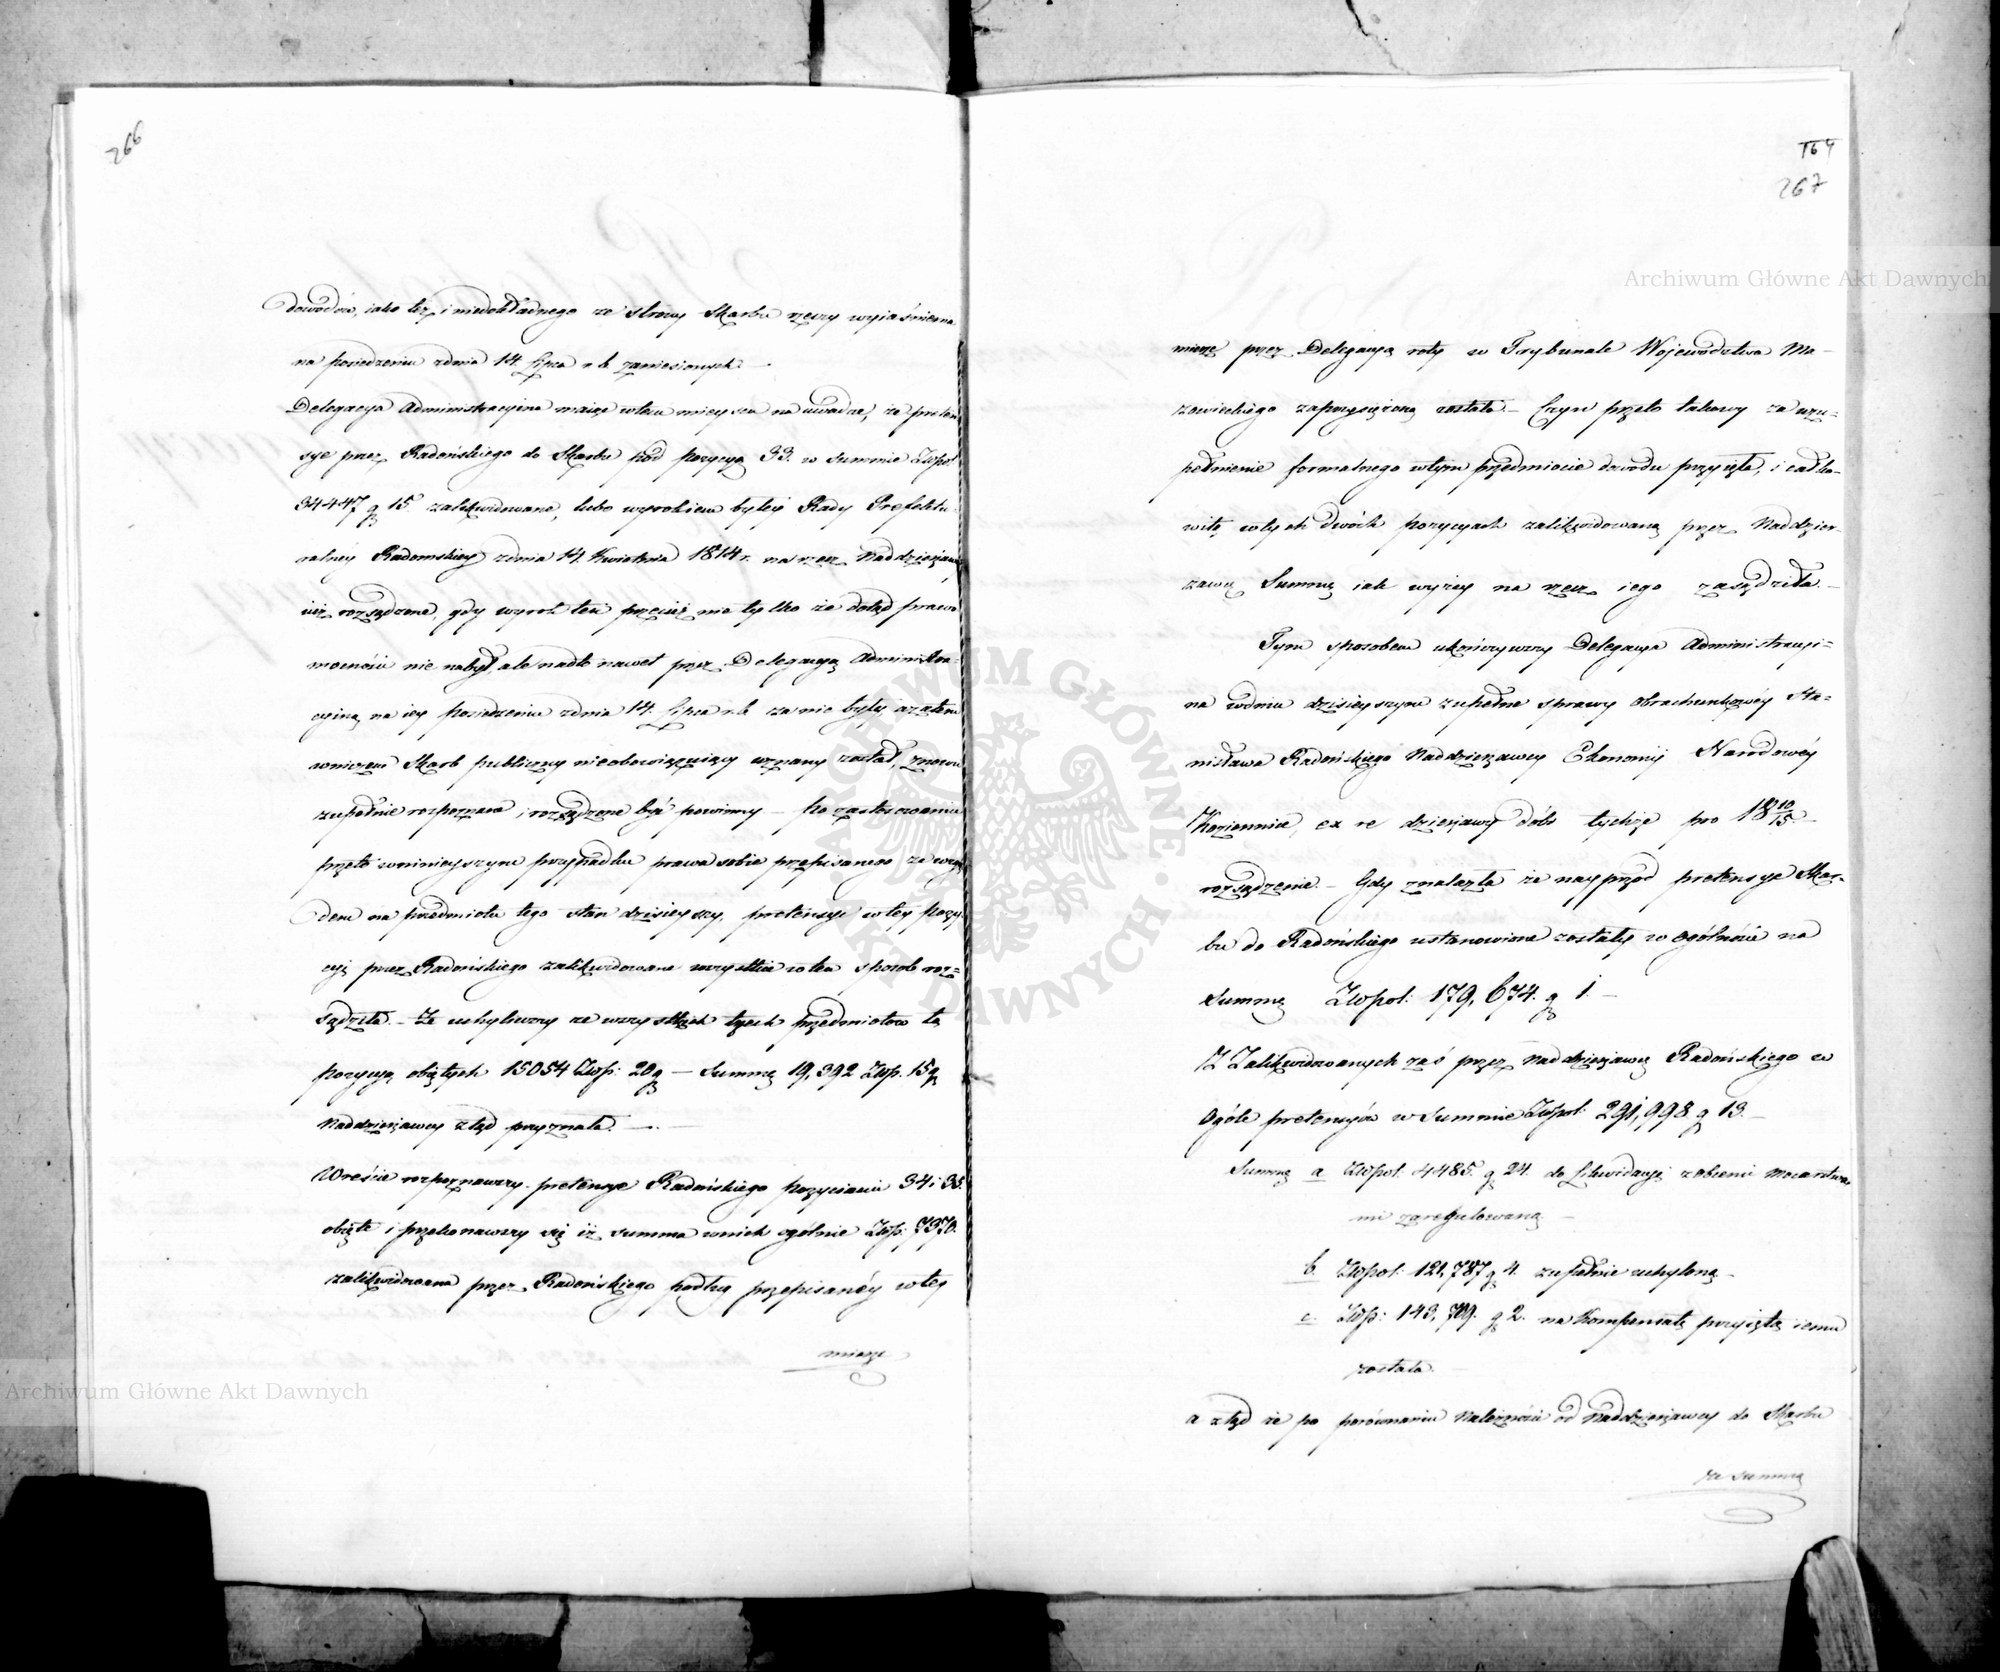 266
dowodów, iako też i niedokładnego ze strony Skarbu rzeczy wyiaśnienia
na posiedzeniu zdnia 14. Lipca r. b. zaniesionych. —
Delegacya Administracyina maiąc wtem mieyscu na uwadze, że preten
sye przez Radońskiego do Skarbu pod pozycyą 33. w Summie Złpol:
34447 g 15. zalikwidowane, lubo wyrokiem byłey Rady Prefektu-
ralney Radomskiey zdnia 14. Kwietnia 1814 r. na rzecz Naddzierżawcy
iuż rozsądzone, gdy wyrok ten przecież nie tylko że dotąd prawo
mocności nie nabył, ale nadto nawet przez Delegacyą Administra-
cyiną na iey posiedzeniu zdnia 14. Lipca r. b. za nie były a zatem
wniczem Skarb publiczny nieobowięzuiący uznany został, znowu
zupełnie rozpoznane i rozsądzone być powinny — Po zastosowaniu
przeto wninieyszym przypadku prawa sobie przepisanego ze wzglę
dem na przedmiotu tego stan dzisieyszy, pretensye wtey pozy
cyi przez Radońskiego zalikwidowane wszystkie w ten sposób roz=
sądziła. — Że uchyliwszy ze wszystkich tych przedmiotów tą
pozycyą obiętych 15054 Złp: 20 g — Summę 19,392 Złp. 15 g
Naddzierżawcy ztąd przyznała. —
Wreście rozpoznawszy pretensye Radońskiego pozyciami 34 i 35.
obięte i przekonawszy się iż summa wnich ogólnie Złp: 7370.
zalikwidowana przez Radońskiego podług przepisanéy wtey
mierze
164
267
mierze przez Delegacyą roty w Trybunale Województwa Ma-
zowieckiego zaprzysiężoną została — Czyn przeto takowy za uzu=
pełnienie formalnego wtym przedmiocie dowodu przyięła, i całko-
witą wtych dwóch pozycyach zalikwidowaną przez Naddzier-
zawcę Summę iak wyżey na rzecz iego zasądziła. —
Tym sposobem ukończywszy Delegacya Administracyi=
na wdniu dzisieyszym zupełne sprawy obrachunkowéy Sta=
nisława Radońskiego Naddzierżawcy Ekonomij Narodowéy
Kozienice, ex re dzierżawy dóbr tychże pro 18 10/15.
rozsądzenie. — Gdy znalazła że nayprzód pretensye Skar-
bu do Radońskiego ustanowione zostały w ogólności na
Summę Złpol: 179,674. g 1. —
Z Zalikwidowanych zaś przez Naddzierżawcę Radońskiego w
Ogóle pretensyów w Summie Złpol: 291,998. g 13. —
Summa a Złpol. 4485. g 24. do Likwidacyi zobcemi Mocarstwa-
mi zaregulowaną —
b. Złpol: 121,787 g 4. zupełnie uchyloną —
c. Złp: 143,709. g 2. na Kompensatę przyiętą iemu
została. —
a ztąd że po porównaniu Należności od Naddzierżawcy do Skarbu
za Summę
Archiwum Główne Akt Dawnych
Archiwum Główne Akt Dawnych
ARCHIWUM GŁÓWNE AKT DAWNYCH